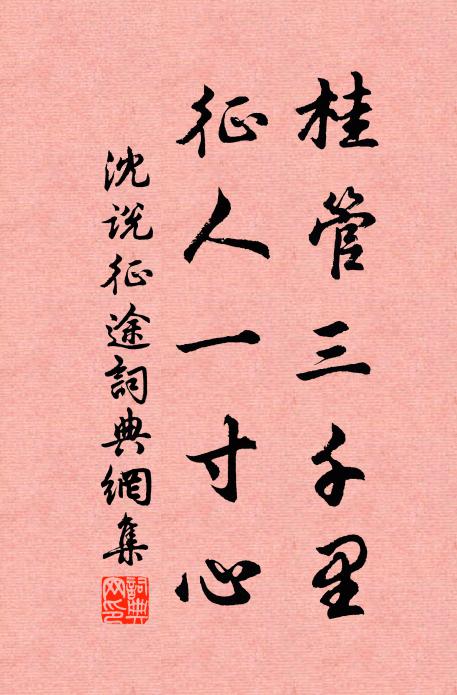 桂管三千里
征人一寸心
沈说征途詞典網集
詞典網印